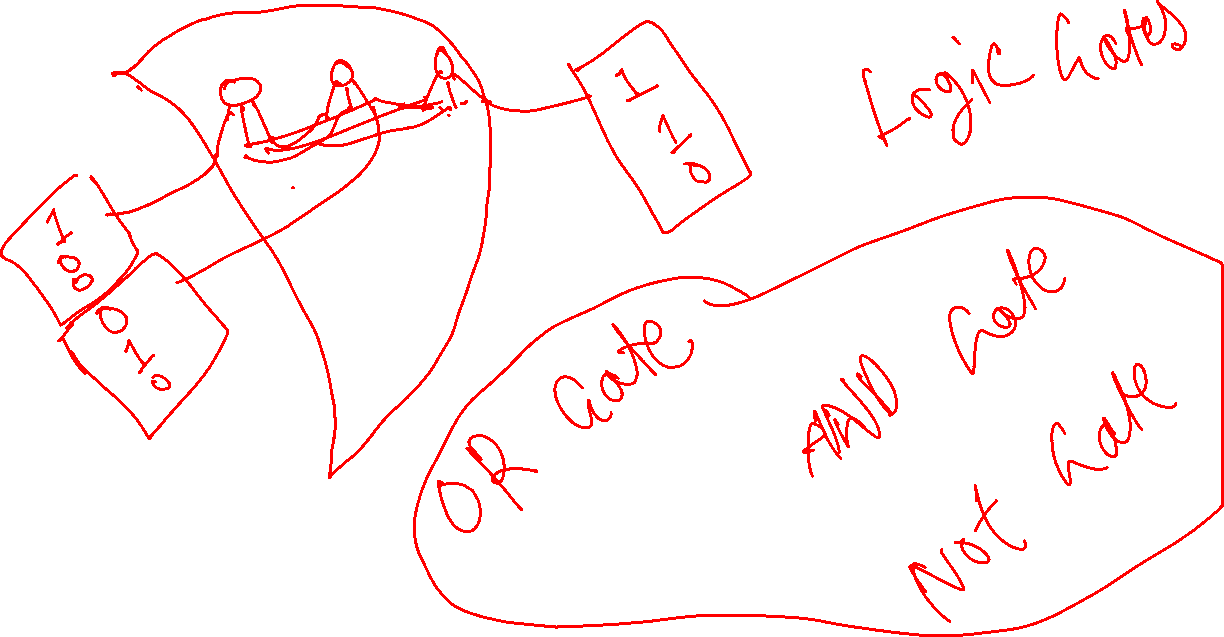 Logic Gates
1
1
0
1
0
0
0
1
0
OR Gate
AND Gate
Not Gate